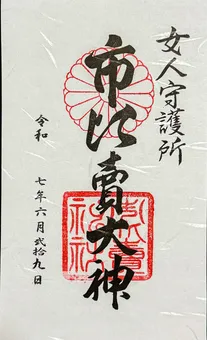 女人守護所
市比賣大神
令和
七年六月弐拾九日